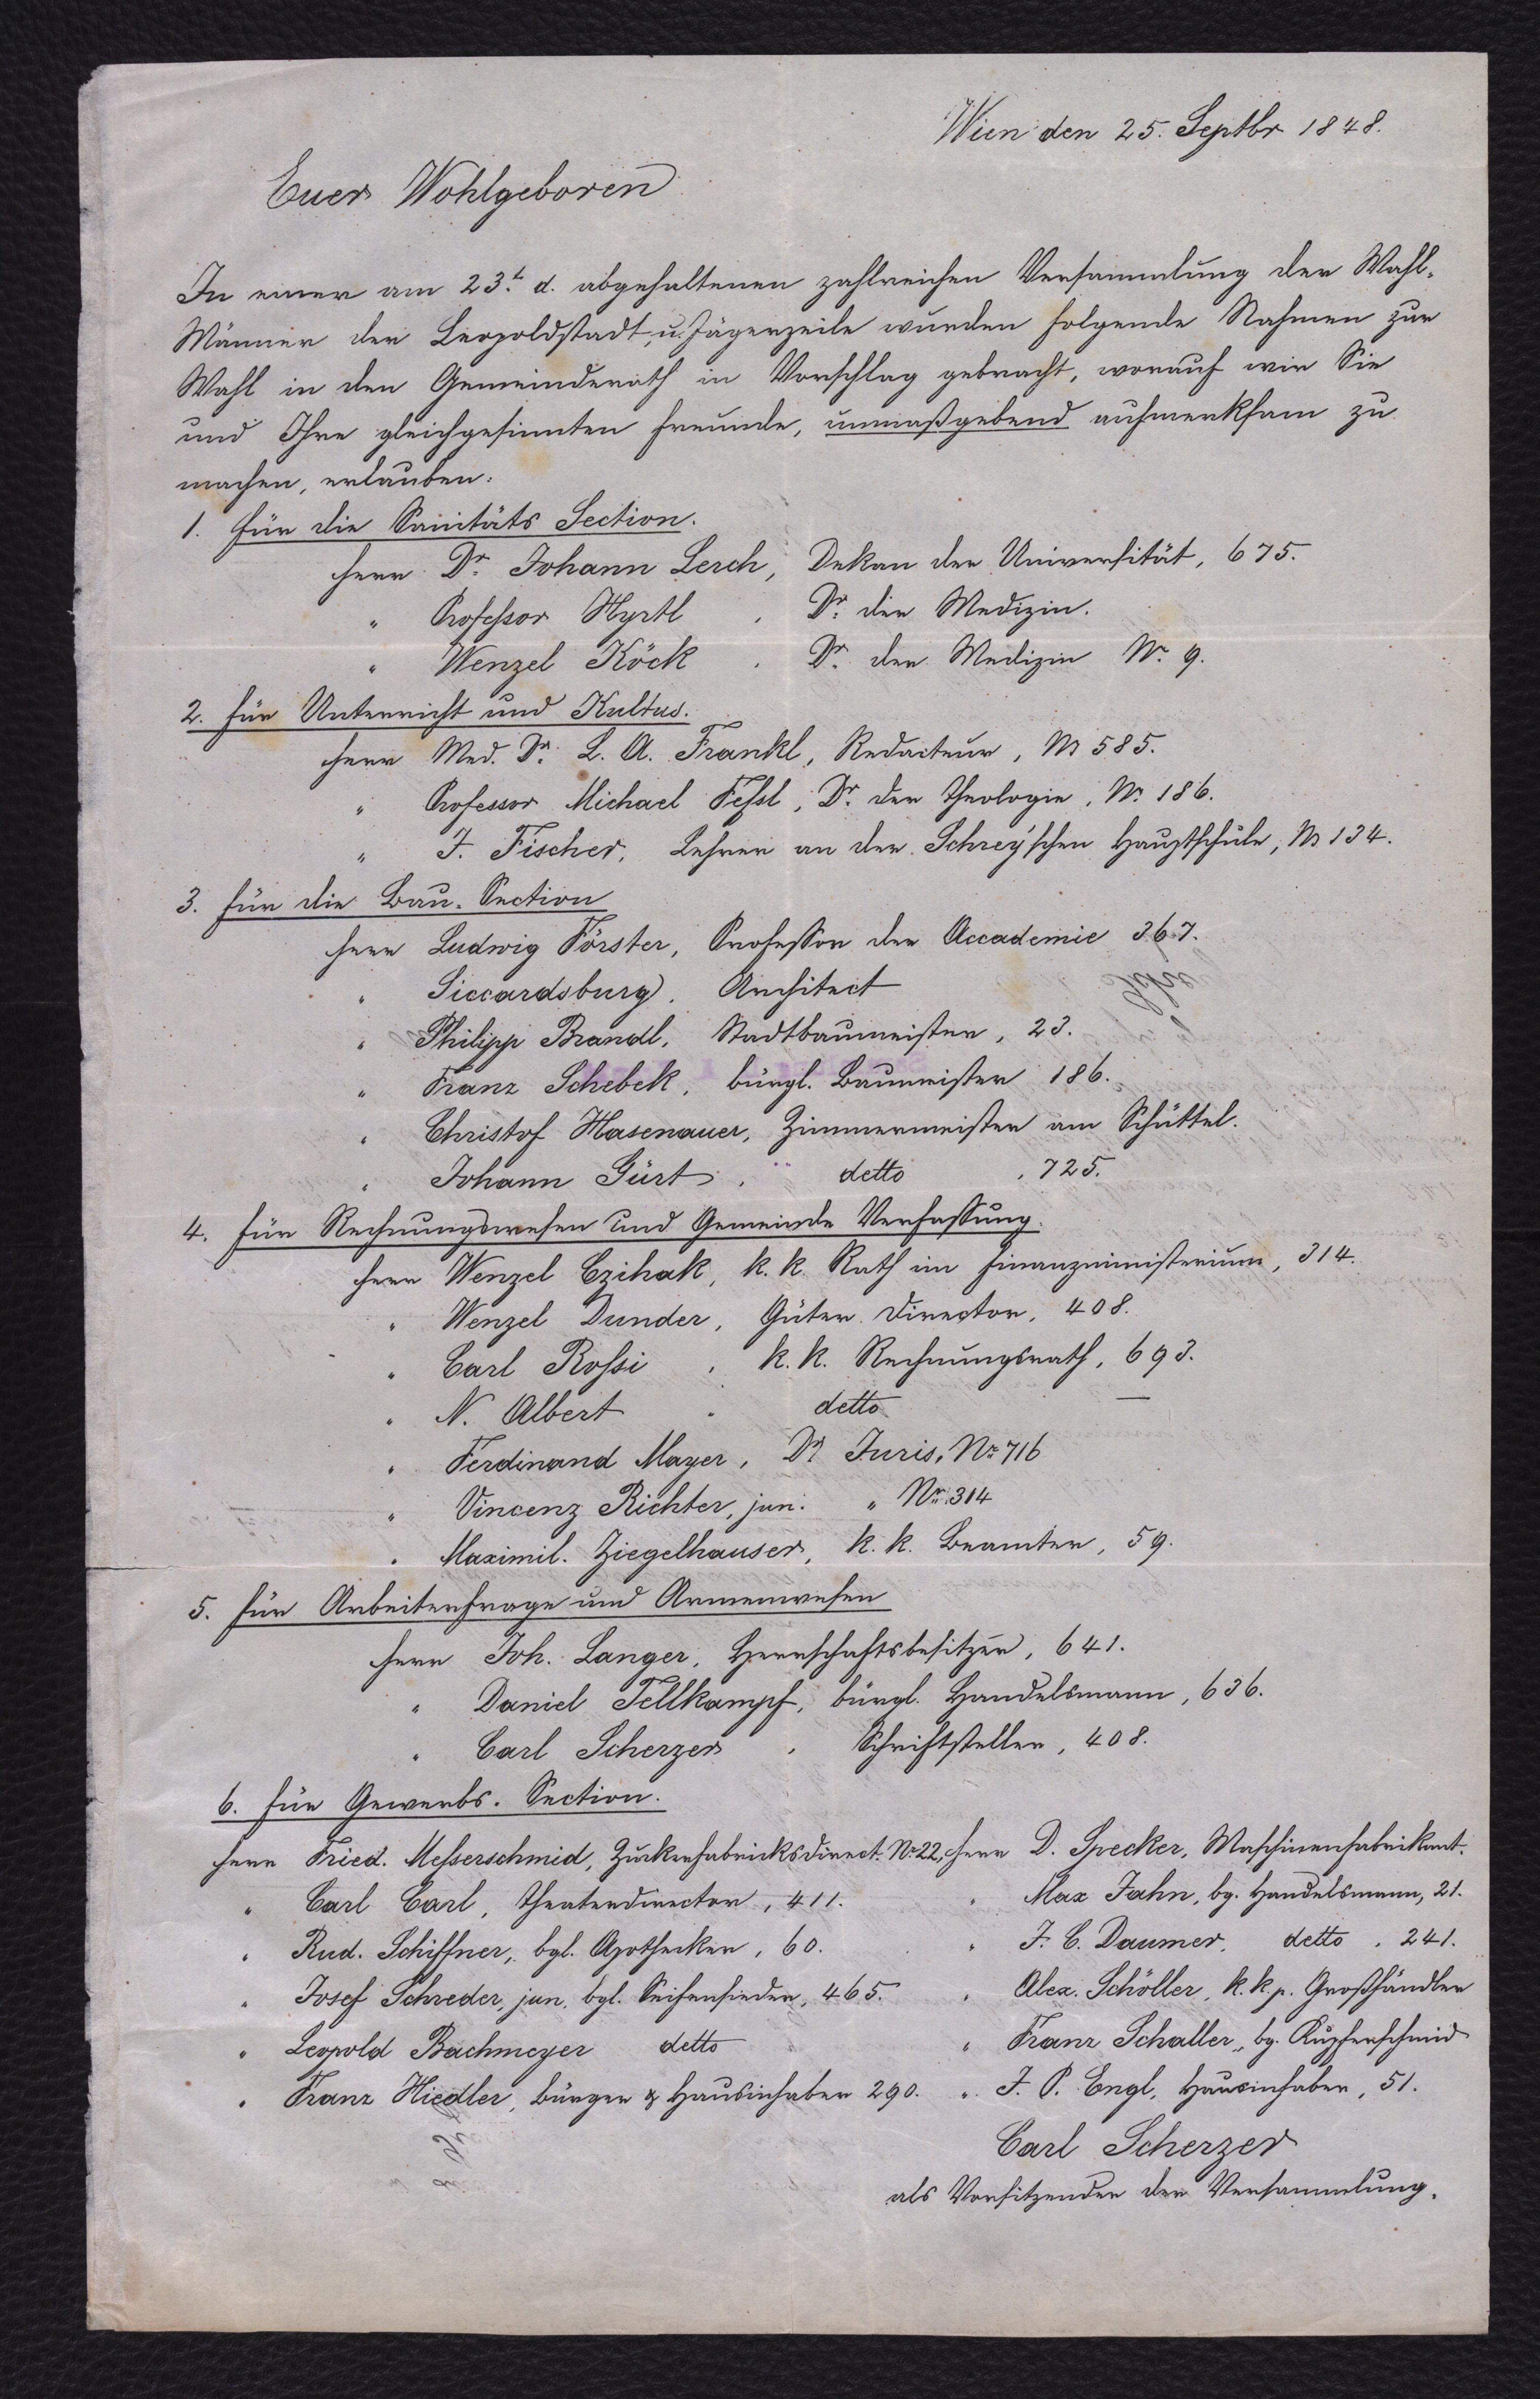 Wien den 25. Septbr 1848.
Euer Wohlgeboren
In einer am 23.t d. abgehaltenen zahlreichen Versammlung der Wahl-
Männer der Leopoldstadt, u. Jägerzeile wurden folgende Nahmen zur
Wahl in den Gemeinderath in Vorschlag gebracht, worauf wir Sie
und Ihre gleichgesinnten Freunde, unmaßgebend aufmerksam zu
machen, erlauben:
1. Für die Sanitäts Section.
Herr Dr. Johann Lerch, Dekan der Universität, 675.
" Professor Hyrtl, Dr. der Medizin.
" Wenzel Köck, Dr. der Medizin Nr. 9.
2. Für Unterricht und Kultus.
Herr Med. Dr. L. A. Frankl, Redacteur, Nr 585.
" Professor Michael Fessl, Dr. der Theologie, Nr. 186.
" J. Fischer, Lehrer an der Schrey'schen Hauptschule, Nr 134.
3. Für die Bau-Section
Herr Ludwig Förster, Professor der Accademie 367.
" Siccardsburg, Architect
" Philipp Brandl, Stadtbaumeister, 23.
" Franz Schebek, bürgl. Baumeister 186.
" Christof Hasenauer, Zimmermeister am Schüttel.
" Johann Gürt, detto, 725.
4. Für Rechnungswesen und Gemeinde Verfassung.
Herr Wenzel Czihak, k. k. Rath im Finanzministerium, 314.
" Wenzel Dunder, Güter Director, 408.
" Carl Rossi, k. k. Rechnungsrath, 693.
" N. Albert " detto —
" Ferdinand Mayer, Dr Juris, Nr. 716
" Vincenz Richter, jun. " Nr. 314
" Maximil. Ziegelhauser, k. k. Beamter, 59.
5. Für Arbeiterfrage und Armenwesen
Herr Joh. Langer, Herrschaftsbesitzer, 641.
" Daniel Tellkampf, bürgl. Handelsmann, 636.
" Carl Scherzer, Schriftsteller, 408.
6. Für Gewerbs-Section.
Herr Fried. Messerschmid, Zuckerfabricksdirect. Nr. 22, Herr D. Specker, Maschinenfabrikant.
" Carl Carl, Theaterdirector, 411. " Max Jahn, bg. Handelsmann, 21.
" Rud. Schiffner, bgl. Apotheker, 60. " J. C. Daumer, detto, 241.
" Josef Schreder, jun. bgl. Seifensieder, 465. " Alex. Schöller, k. k. p. Großhändler
" Leopold Bachmeyer detto " Franz Schaller, bg. Kupferschmid
" Franz Hiedler, Bürger & Hausinhaber 290. " J. P. Engl, Hausinhaber, 51.
Carl Scherzer
als Vorsitzender der Versammlung.